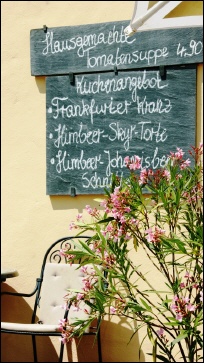 Hausgemachte
Tomatensuppe 4.90
Kuchenangebot
• Frankfurter Kranz
• Himbeer-Skyr-Torte
• Himbeer-Johannisbe
Schnitt